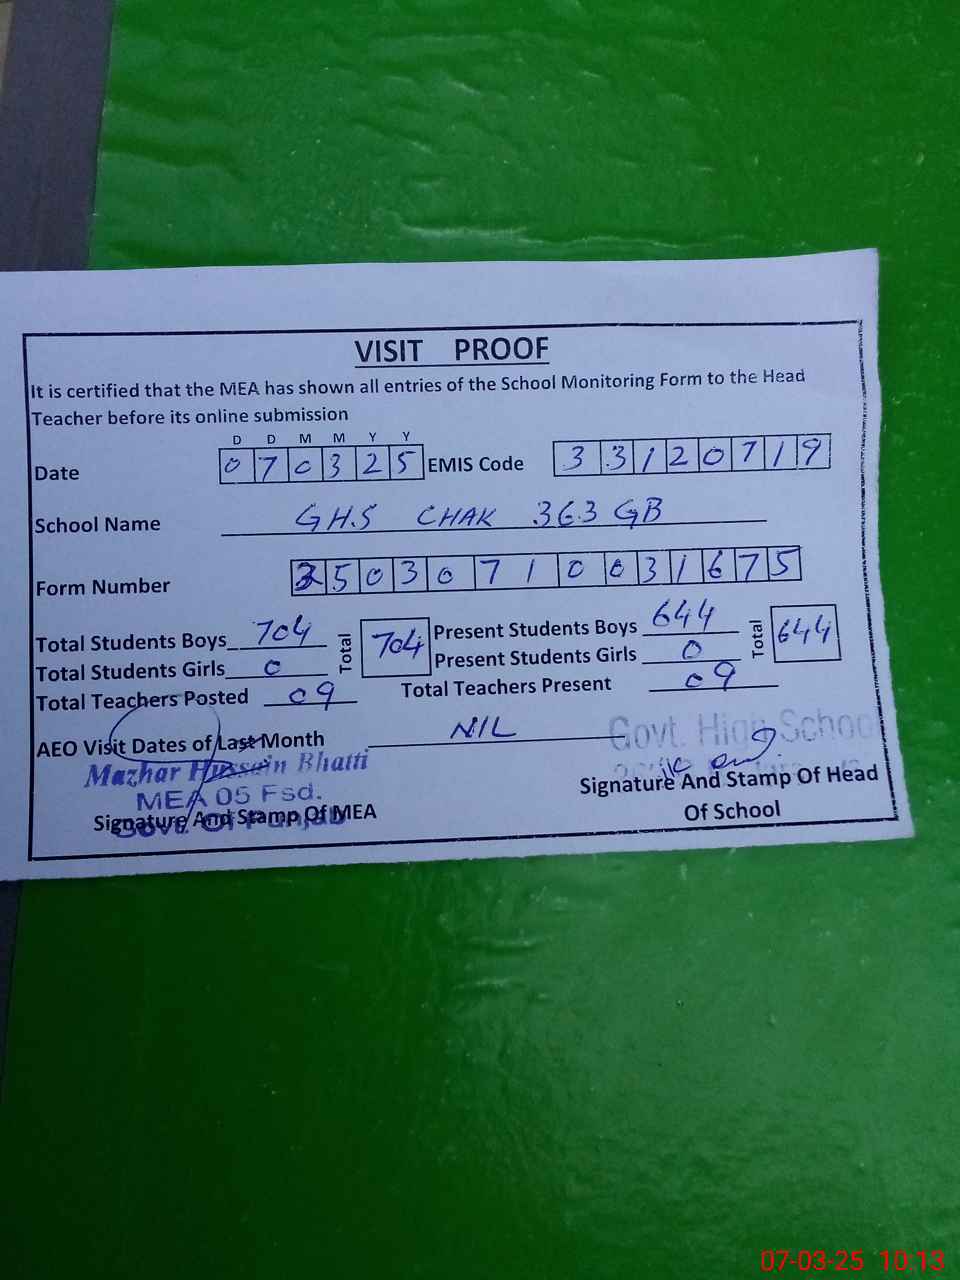 VISIT PROOF
It is certified that the MEA has shown all entries of the School Monitoring Form to the Head
Teacher before its online submission
D D M M Y Y
Date 0 7 0 3 2 5 EMIS Code 3 3 1 2 0 7 1 9
School Name GHS CHAK 363 GB
Form Number 2 5 0 3 0 7 1 0 0 3 1 6 7 5
Total Students Boys 704 Total 704 Present Students Boys 644 Total 644
Total Students Girls 0 Present Students Girls 0
Total Teachers Posted 09 Total Teachers Present 09
AEO Visit Dates of Last Month NIL Govt. High School
Mazhar Hussain Bhatti
MEA 05 Fsd.
Govt. Of Punjab
Signature And Stamp Of MEA
Signature And Stamp Of Head
Of School
07-03-25 10:13